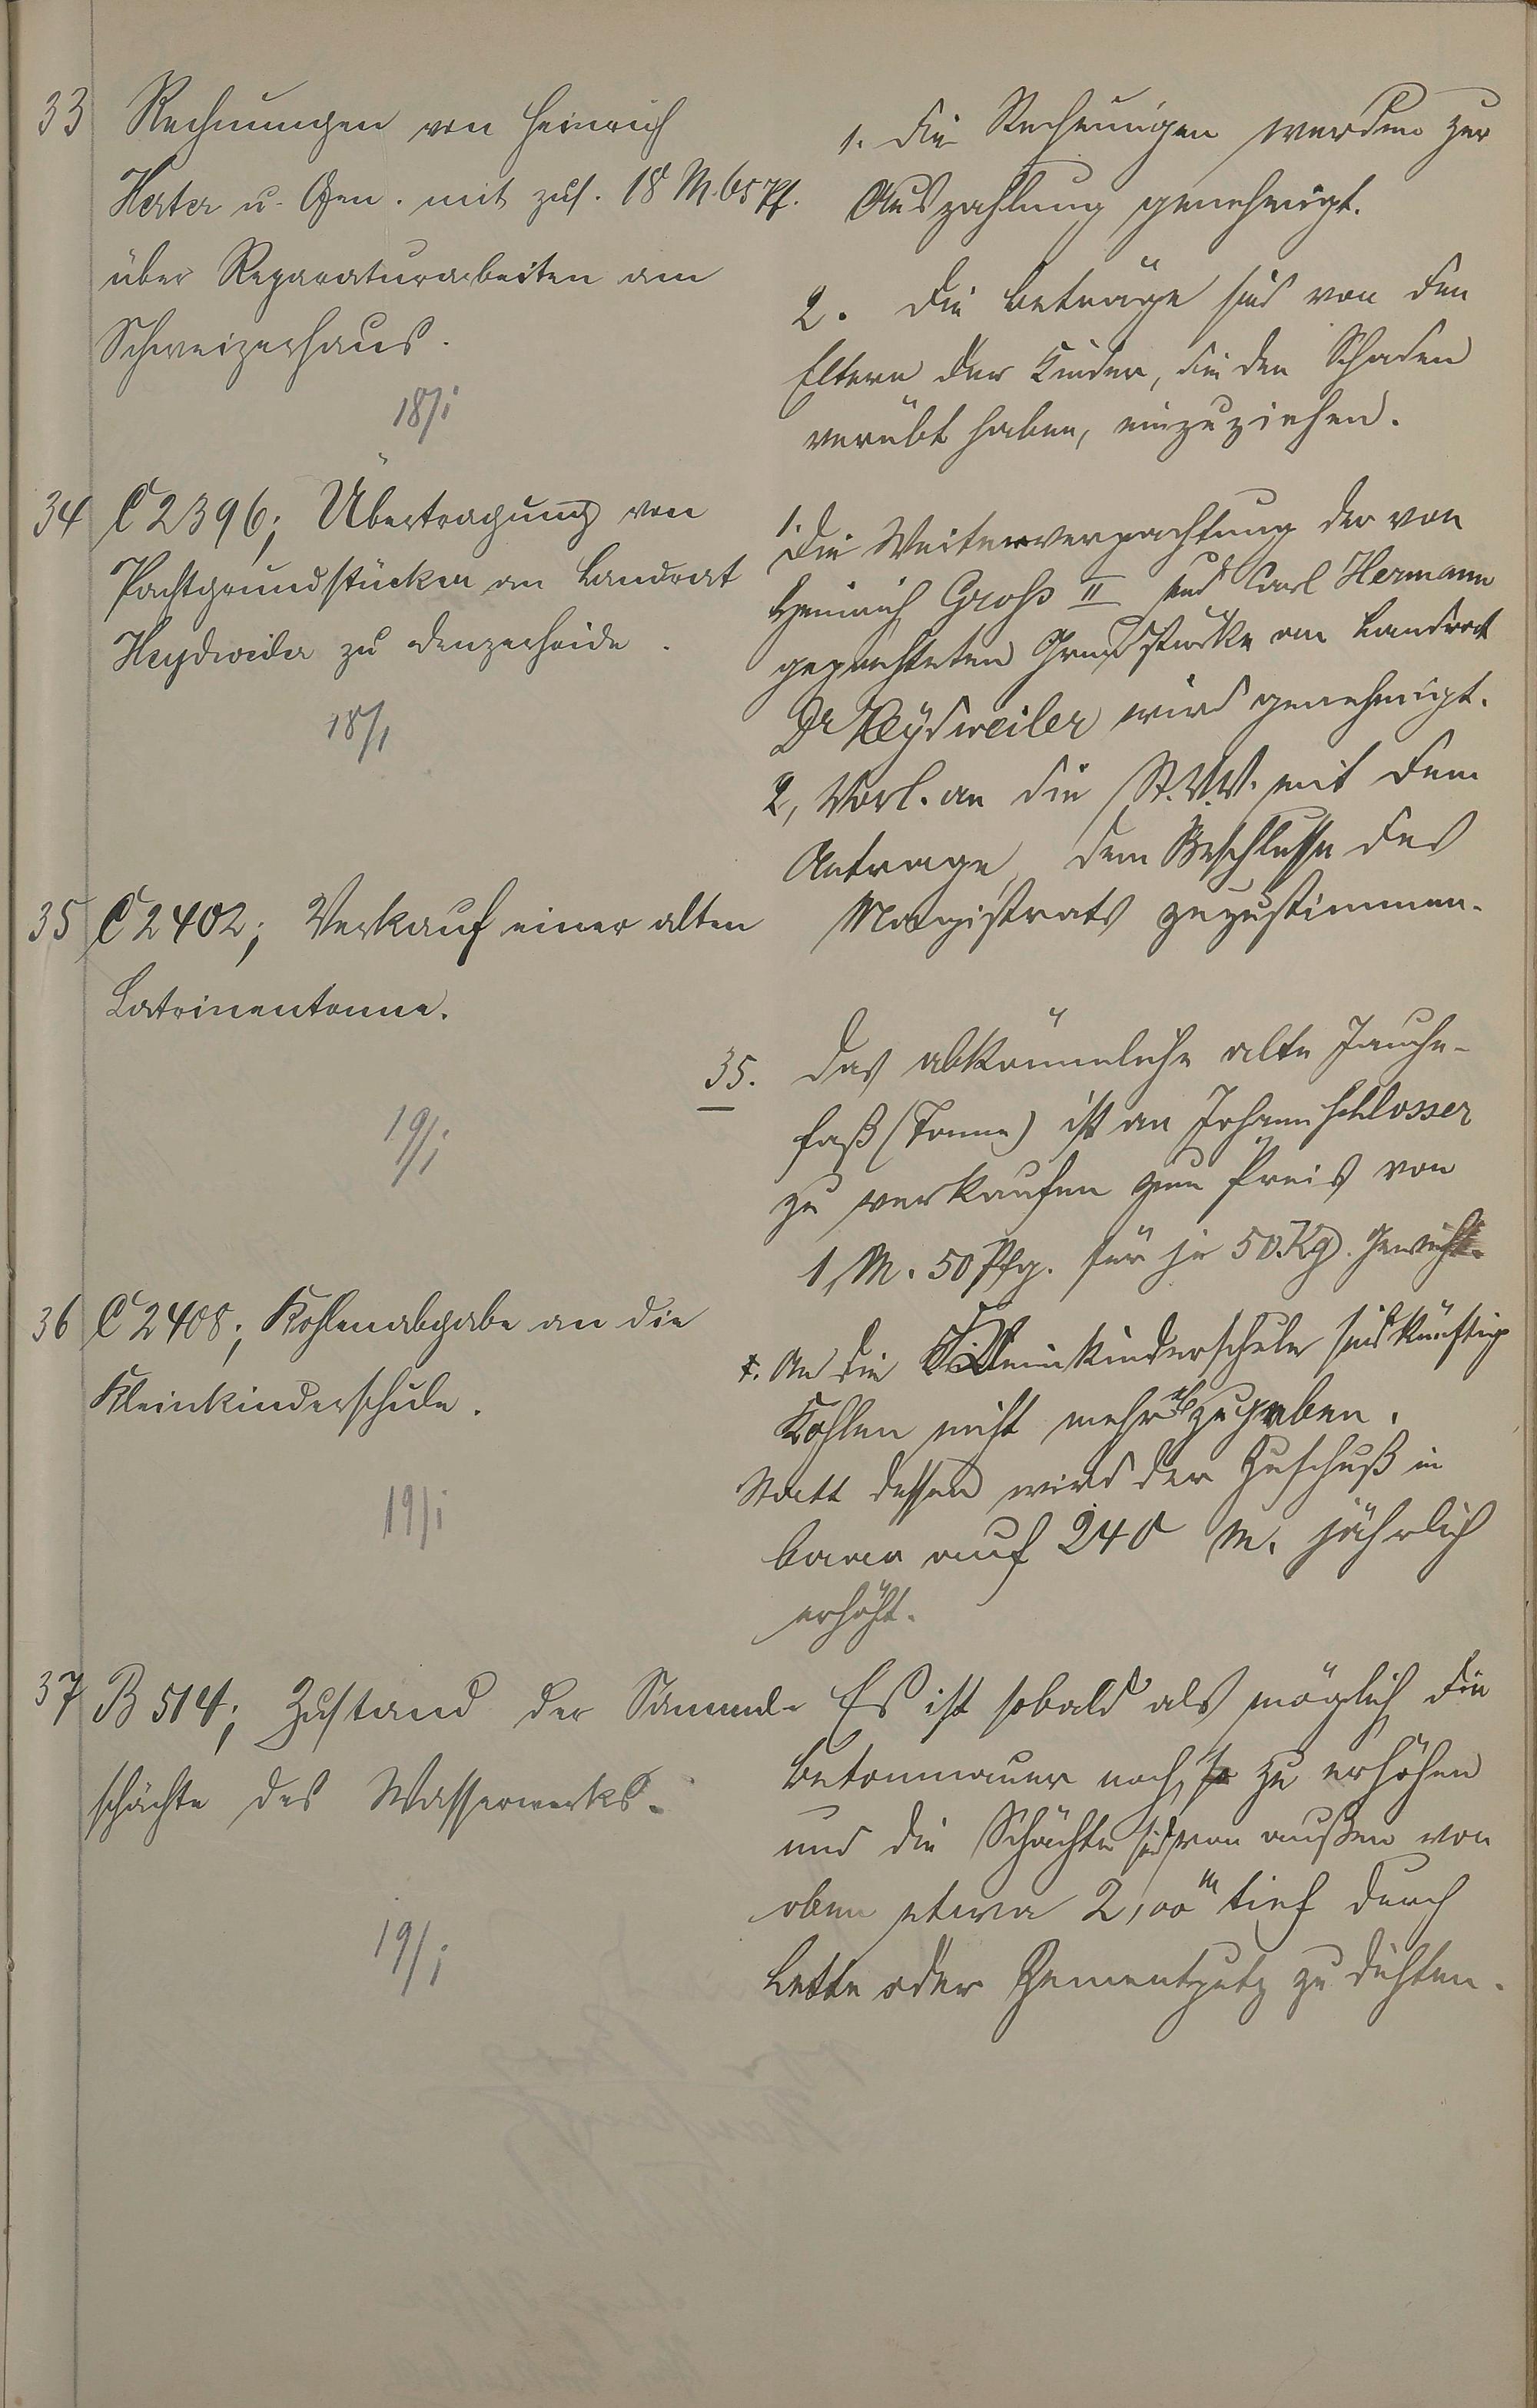 33 Rechnungen von Heinrich
Herter u. Gen. mit zus. 18 M. 65 Pf.
über Reparaturarbeiten am
Schweizerhaus.
18/i
1. Die Rechnungen werden zur
Auszahlung genehmigt.
2. Die Beträge sind von den
Eltern der Kinder, die den Schaden
verübt haben, einzuziehen.
34 C 2396; Übertragung von
Pachtgrundstücken an Landrat
Heydweiler zu Denzerheide.
18/1
1. Die Weiterverpachtung der von
Heinrich Groß II und Carl Hermann
gepachteten Grundstücke an Landrat
Dr Heydweiler wird genehmigt.
2, Vorl. an die St.V.V. mit dem
Antrage, dem Beschlusse des
Magistrats zuzustimmen.
35 C 2402; Verkauf einer alten
Latrinentonne.
19/i
35. Das abkömmliche alte Jauche-
faß (Tonne) ist an Johann Schlosser
zu verkaufen zum Preis von
1 M. 50 Pfg. für je 50 Kg. Gewicht.
36 C 2408; Kohlenabgabe an die
Kleinkinderschule.
19/i
An die Kleinkinderschule sind künftig
Kohlen nicht mehr abzugeben.
Statt dessen wird der Zuschuß in
baar auf 240 M. jährlich
erhöht.
37 B 514; Zustand der Sammel-
schächte des Wasserwerks.
19/i
Es ist sobald als möglich die
Betonmauer noch zu erhöhen
und die Schächte sind von außen von
oben etwa 2,00 m tief durch
Lette oder Zementputz zu dichten.